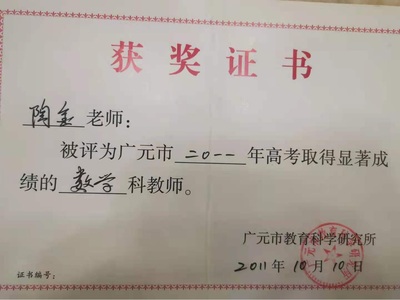 获奖证书
陶金老师：
被评为广元市二〇一一年高考取得显著成
绩的数学科教师。
广元市教育科学研究所
2011年10月10日
证书编号：